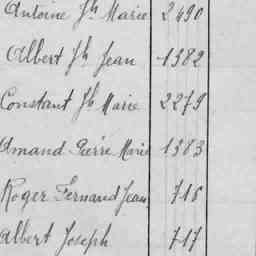 Antoine Jh Marie 2490
Albert Jh Jean 1382
Constant Jh Marie 2279
Amand Pierre Marie 1383
Roger Fernand Jean 716
Albert Joseph 717